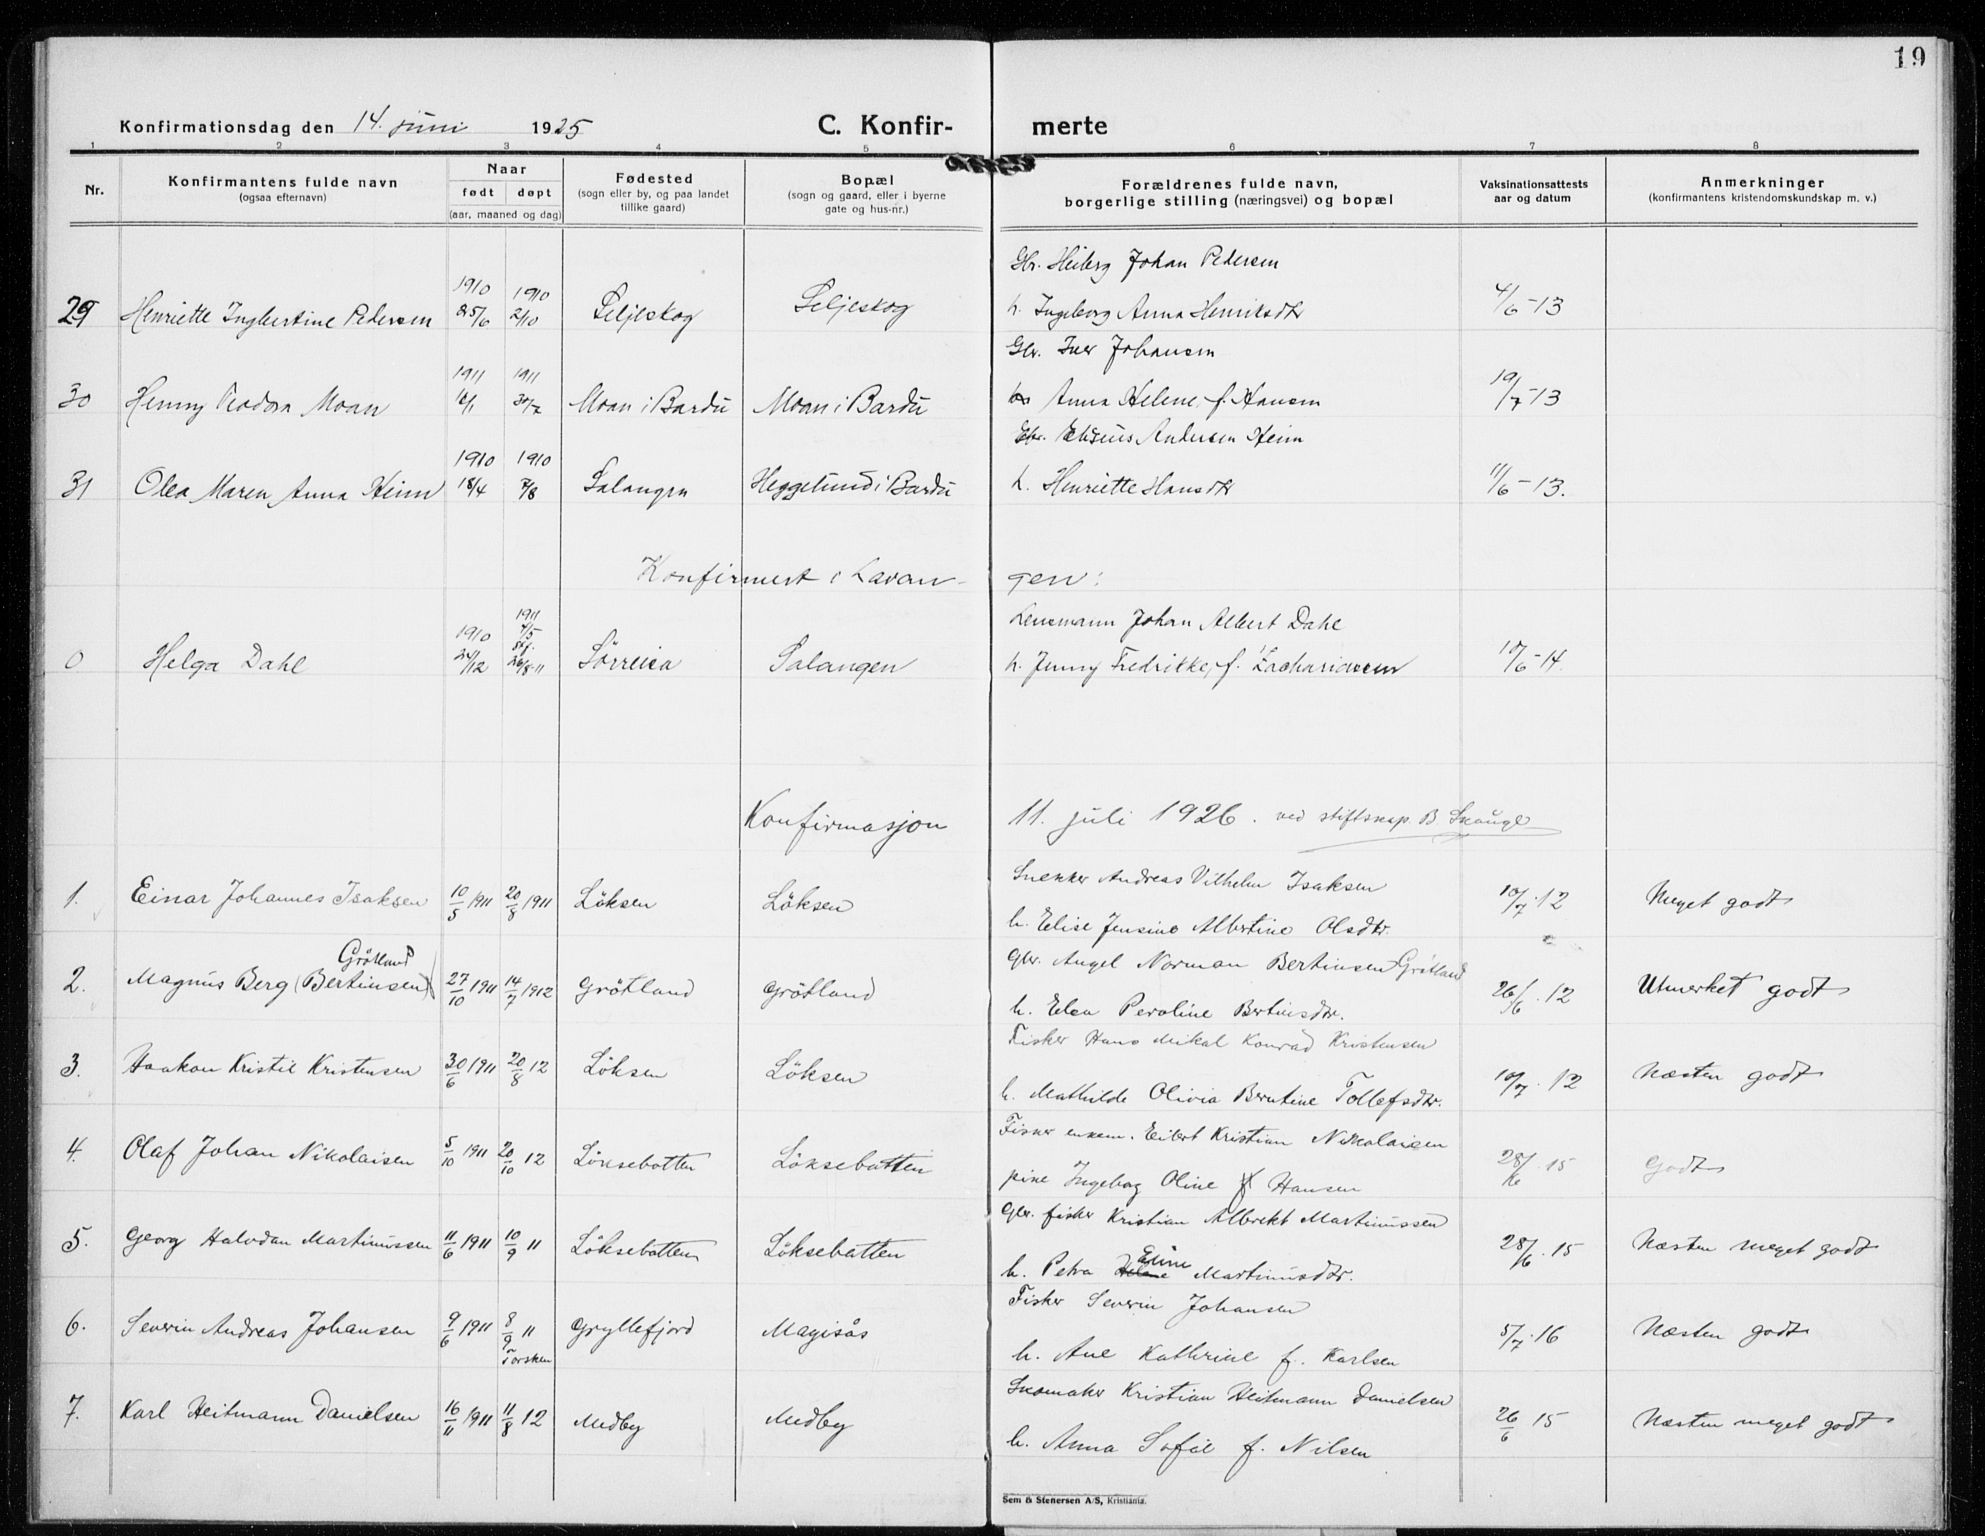 19
Konfirmationsdag den 14. juni 1925 C. Konfir- merte
1 2 3 4 5 6 7 8
Nr. Konfirmantens fulde navn (ogsaa efternavn) Naar født døpt (aar, maaned og dag) Fødested (sogn eller by, og paa landet tillike gaard) Bopæl (sogn og gaard, eller i byerne gate og hus-nr.) Forældrenes fulde navn, borgerlige stilling (næringsvei) og bopæl Vaksinationsattests aar og datum Anmerkninger (konfirmantens kristendomskundskap m. v.)
Gbr. Heiberg Johan Pedersen
29 Henriette Ingbertine Pedersen 1910 25/6 1910 2/10 Seljeskog Seljeskog h. Ingeborg Anna Henriksdtr 4/6-13
Gbr. Iver Johansen
30 Henny Teodora Moan 1911 1911 30/7 Moan i Bardu Moan i Bardu Anna Helene f. Hansen 19/7-13
Gbr. Andersen Heim
31 Olea Maren Anna Heim 1910 18/4 1910 7/8 Salangen Heggelund i Bardu h. Henriette Hansdtr 11/6-13.
Konfirmert i Lavan- gen:
Lensmann Johan Albert Dahl
0 Helga Dahl 1910 24/12 1911 7/5 26/8-11 Sörreisa Salangen h. Jenny Fredrikke, f. Zachariassen 10/6-14.
Konfirmasjon 11. juli 1926. ved stiftskap. B. Skauge
Snekker Andreas Vilhelm Isaksen
1. Einar Johannes Isaksen 10/5 1911 20/8 1911 Löksen Löksen h. Elise Jensine Albertine Olsdtr. 10/7.12 Meget godt
Grötland
Gbr. Angel Norman Bertinsen Grötland
2. Magnus Berg (Bertinsen) 27/10 1911 14/7 1912 Grötland Grötland h. Elea Peroline Bertinsdtr. 26/6.12 Utmerket godt
Fisker Hans Mikal Konrad Kristensen
3. Haakon Kristil Kristensen 30/6 1911 20/8 12 Löksen Löksen h. Mathilde Olivia Berntine Tollefsdtr. 10/7.12 Næsten godt
Fisker enkem. Eilert Kristian Nikolaisen
4. Olaf Johan Nikolaisen 5/10 1911 20/10 12 Löksebotten Löksebotten pine Ingeborg Oline f Hansen 28/6.15 Godt
Gbr. fisker Kristian Albrekt Martinussen
5. Georg Halvdan Martinussen 11/6 1911 10/9 11 Löksebotten Löksebotten h. Petra Eline Martinusdtr. 28/6.15 Næsten meget godt
Fisker Severin Johansen
6. Severin Andreas Johansen 9/6 1911 8/9 11 Torsken Gryllefjord Magisås h. Ane Kathrine f. Karlsen 5/7.16 Næsten godt
Skomaker Kristian Heitmann Danielsen
7. Karl Heitmann Danielsen 16/11 1911 11/8 12 Medby Medby h. Anna Sofie f. Nilsen 26/6 15 Næsten meget godt
Sem & Stenersen A/S, Kristiania.